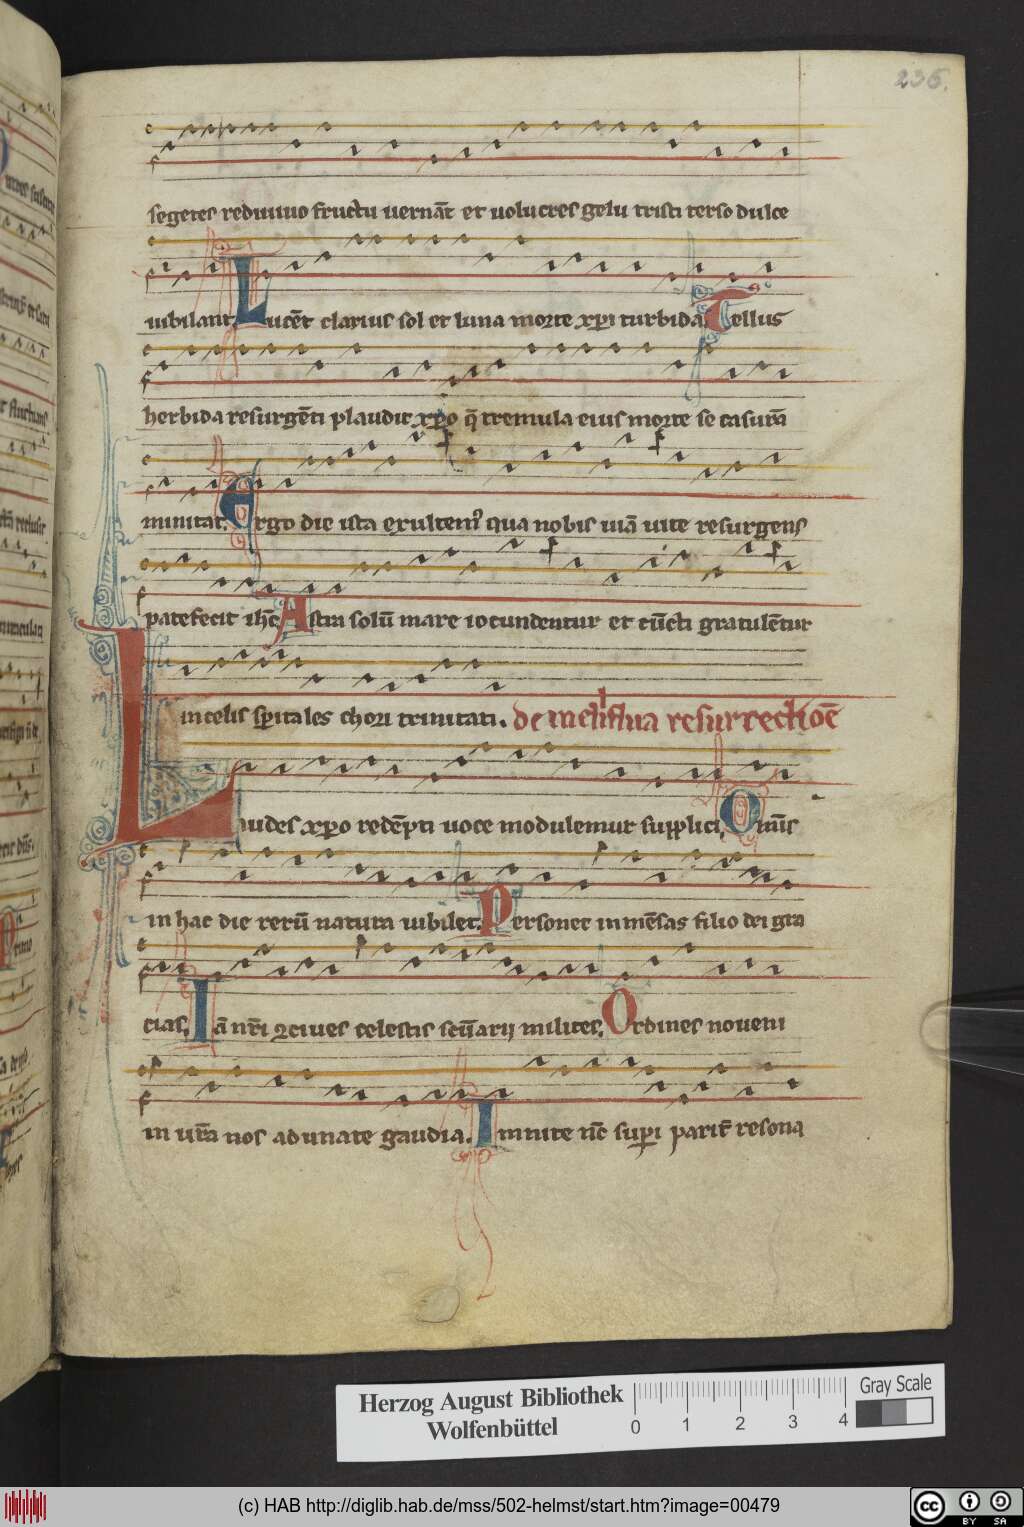 236.
segetes rediuiuo fructu uernāt et uolucres gelu tristi terso dulce
iubilant. Lucēt clarius sol et luna morte xp̄i turbida. Tellus
herbida resurgēti plaudit xp̄o q̄ tremula eius morte se casurā
minitat. Ergo die ista exultem᷒ qua nobis uiā uite resurgens
patefecit ih̄c Astra solū mare iocundentur et cūcti gratulētur
in celis sp̄itales chori trinitati. de mellifflua resurrectiōē
Laudes xp̄o redēpti uoce modulemur supplici. Omīs
in hac die rerū natura iubilet. Personet inmēsas filio dei gra
cias. Iā nr̄i ꝯciues celestis scūarij milites. Ordines noueni
in ur̄a nos adunate gaudia. Innuite nē sup̄i parit̄ resona
Herzog August Bibliothek
Wolfenbüttel
0 1 2 3 4
Gray Scale
(c) HAB http://diglib.hab.de/mss/502-helmst/start.htm?image=00479
cc BY SA